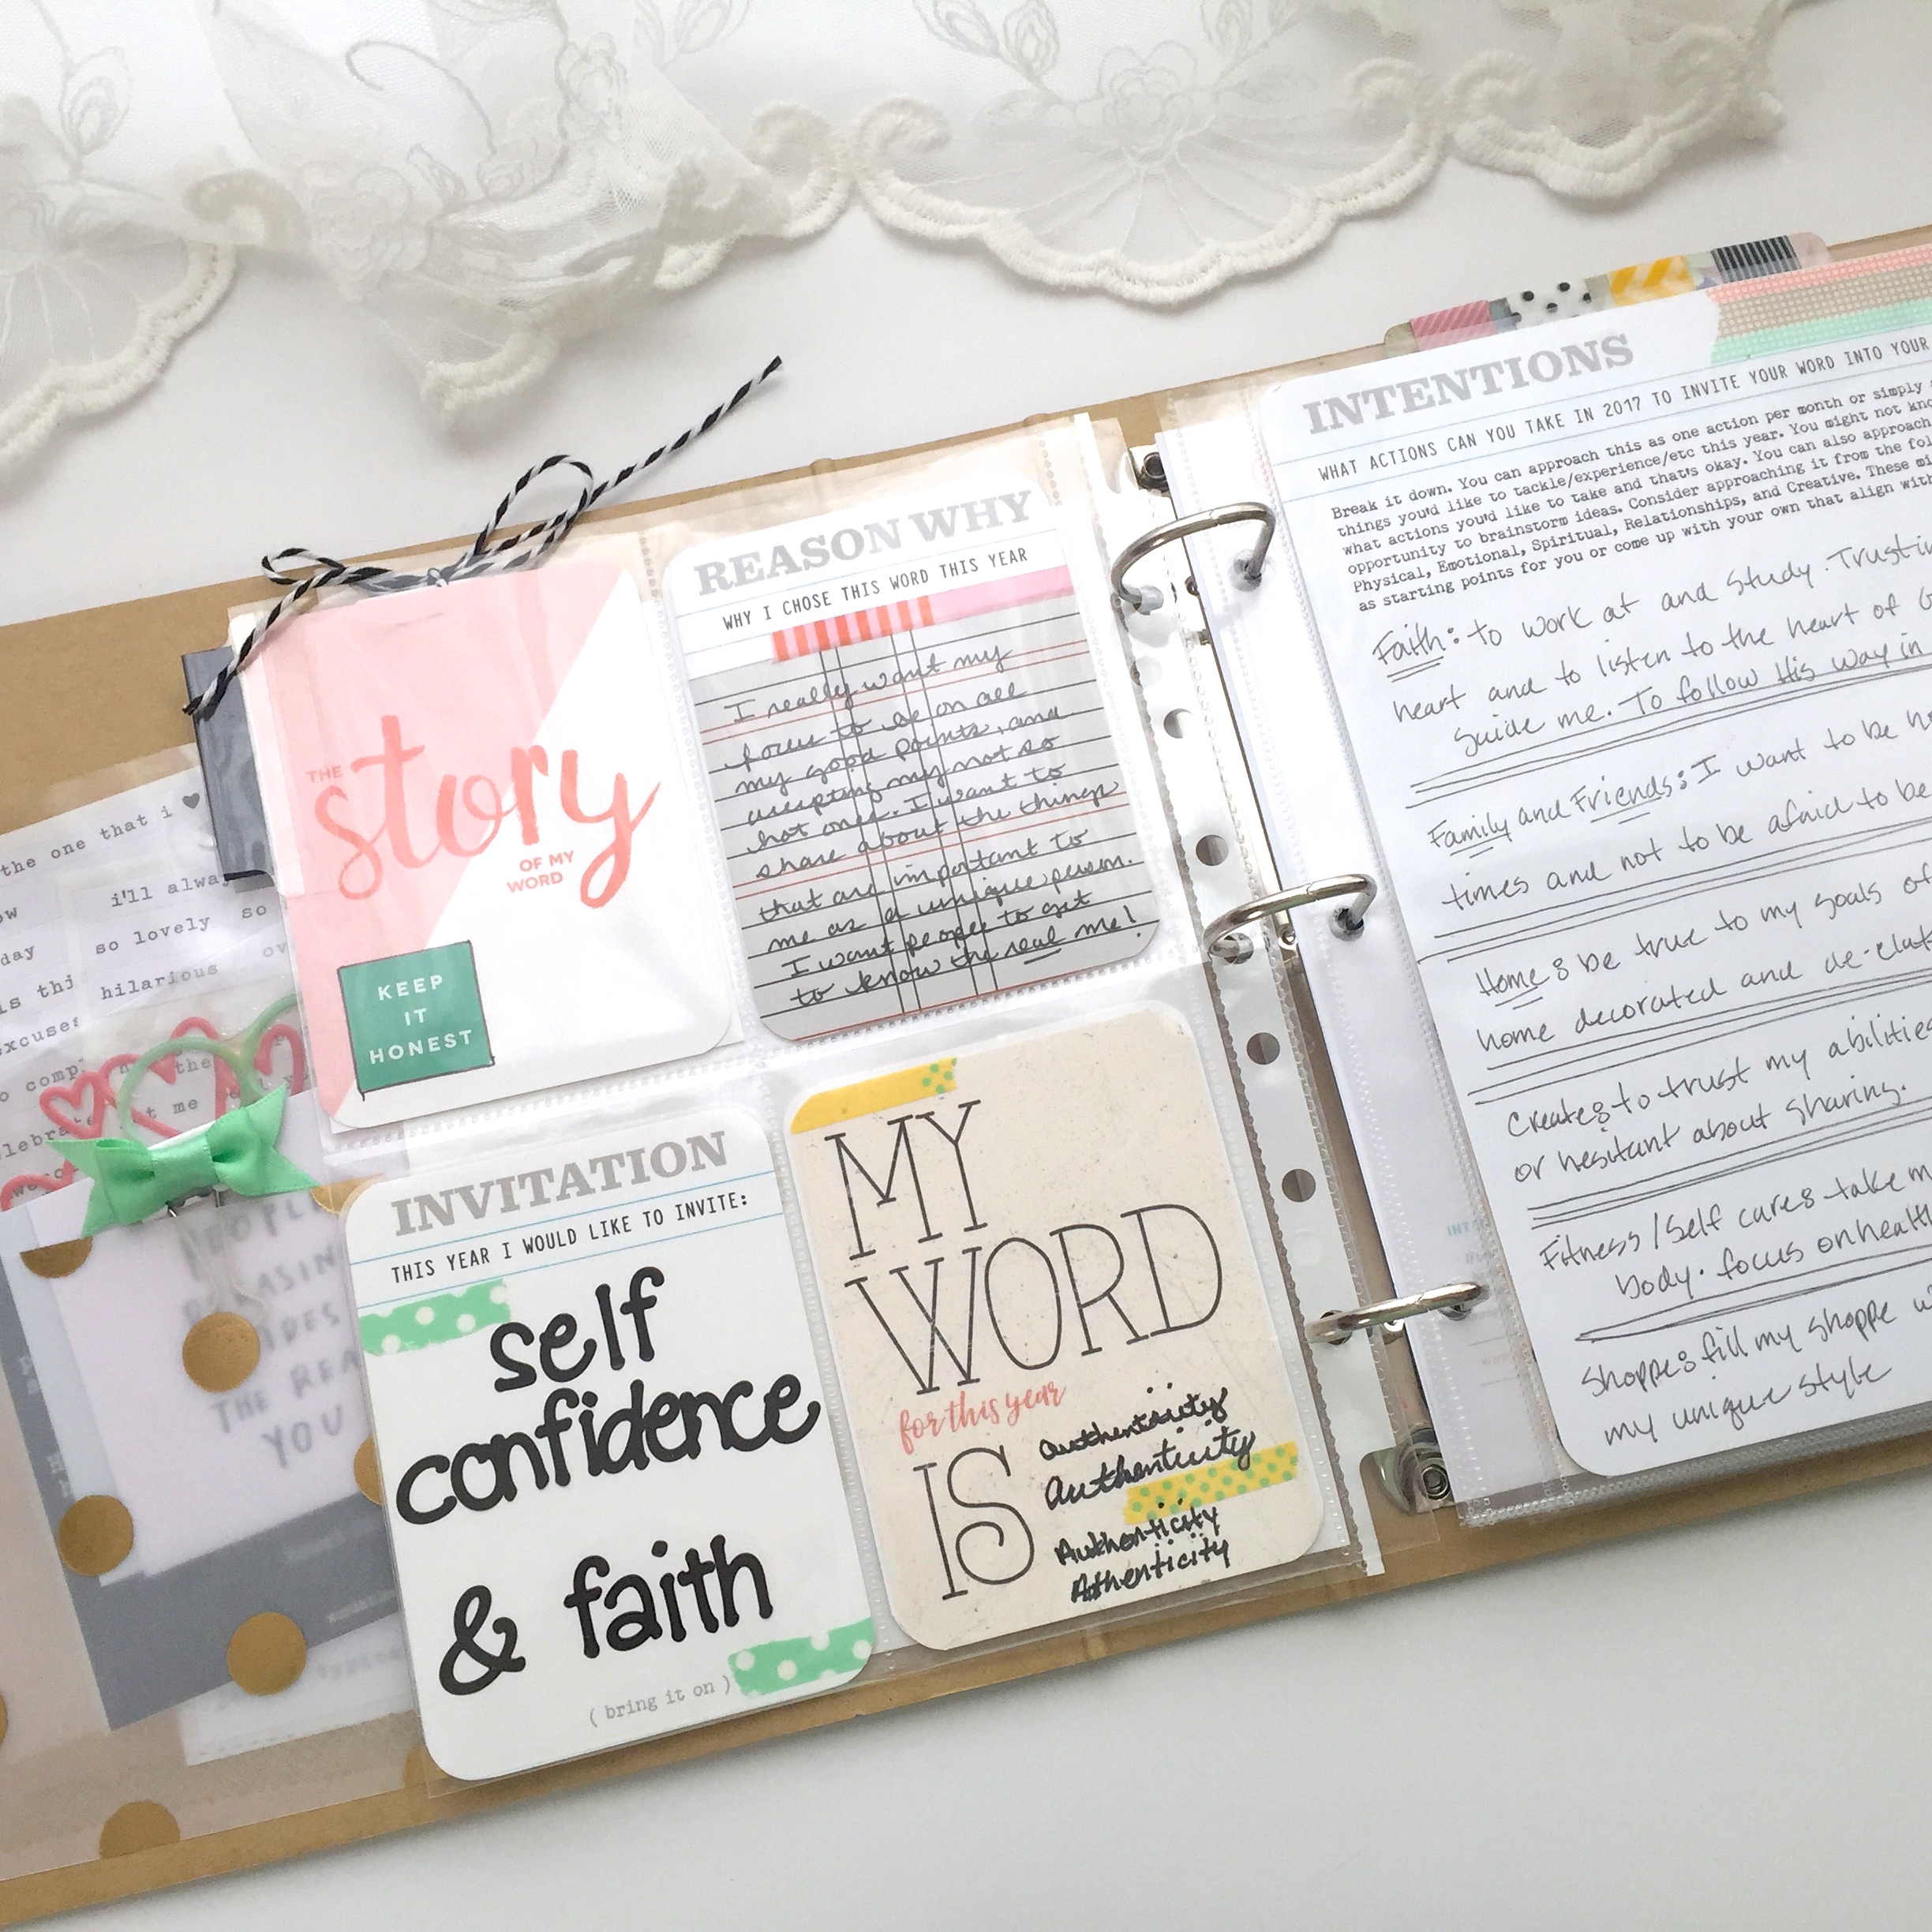 the one that i ♥
i'll alwa
so lovely so
day
hilarious
s thi
excuses
comp
the
me
THE REA
YOU
THE
story
OF MY
WORD
KEEP
IT
HONEST
REASON WHY
WHY I CHOSE THIS WORD THIS YEAR
I really want my
focus to be on all
my good points, and
accepting my not so
hot ones. I want to
share about the things
that are important to
me as a unique person.
I want people to get
to know the real me!
INVITATION
THIS YEAR I WOULD LIKE TO INVITE:
self
confidence
& faith
( bring it on )
MY
WORD
for this year
IS
Authenticity
Authenticity
Authenticity
Athenticity
INTENTIONS
WHAT ACTIONS CAN YOU TAKE IN 2017 TO INVITE YOUR WORD INTO YOUR
Break it down. You can approach this as one action per month or simply
things you'd like to tackle/experience/etc this year. You might not kno
what actions you'd like to take and that's okay. You can also approach
opportunity to brainstorm ideas. Consider approaching it from the fol
Physical, Emotional, Spiritual, Relationships, and Creative. These mi
as starting points for you or come up with your own that align with
Faith: to work at and study. Trustin
heart and to listen to the heart of G
guide me. To follow His way in
Family and Friends: I want to be h
times and not to be afraid to be
Home: be true to my goals of
home decorated and de-clut
Create: to trust my abilities
or hesitant about sharing.
Fitness/Self care: take m
body. focus on health
Shoppe: fill my shoppe w
my unique style